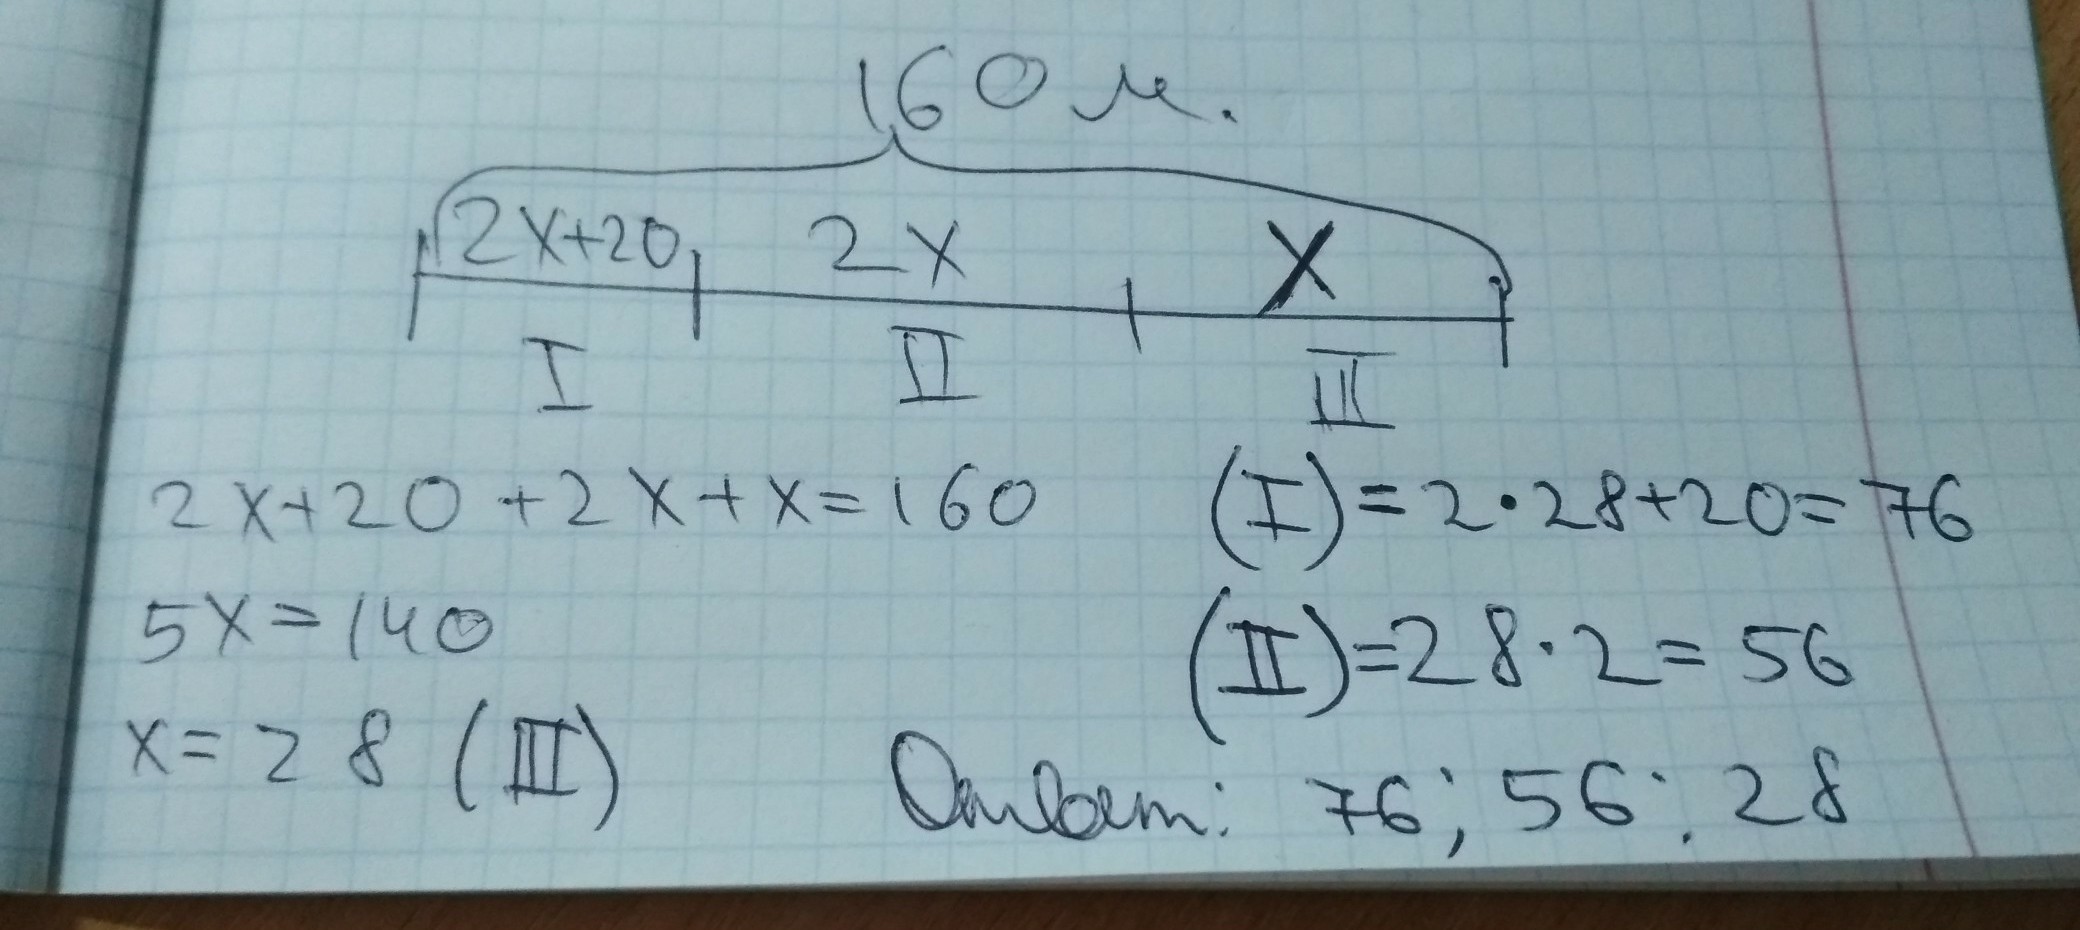 160 м.
2x+20 2x x
I II III
2x+20+2x+x=160
5x=140
x=28 (III)
(I)=2·28+20=76
(II)=28·2=56
Ответ: 76; 56; 28